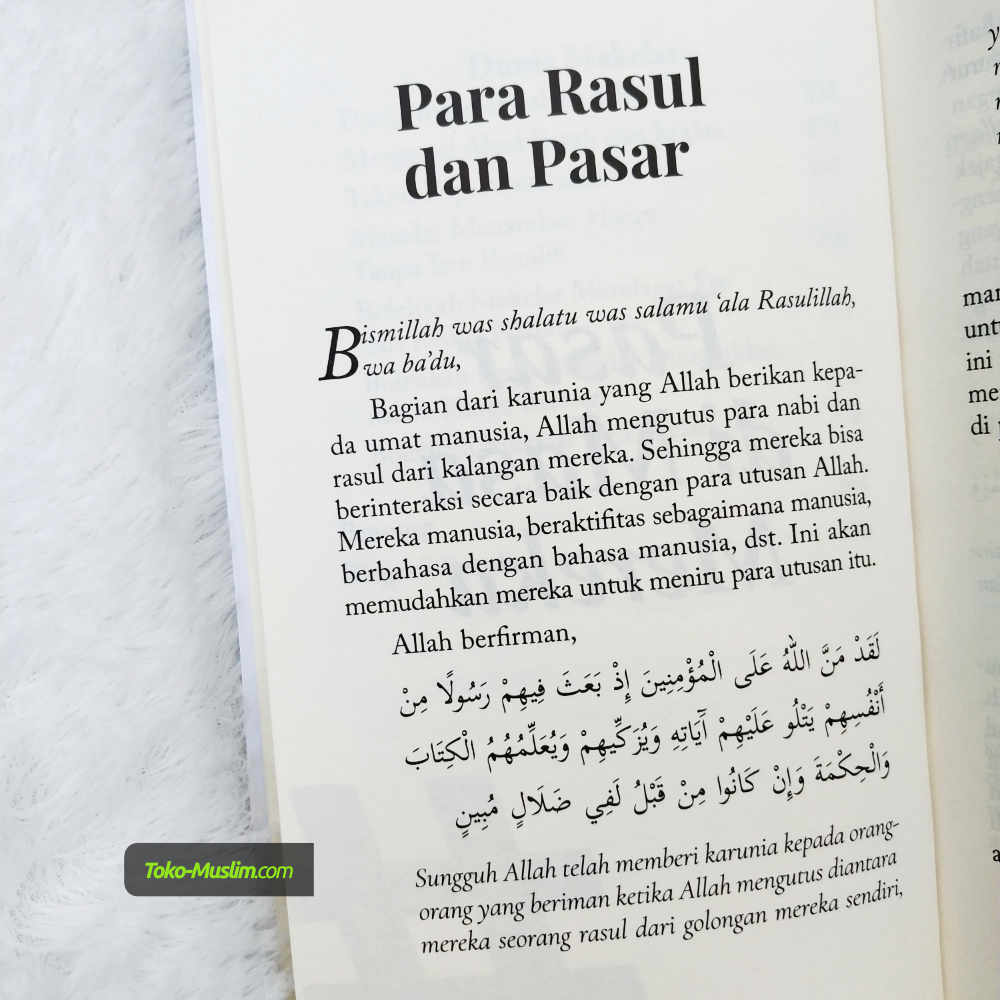 Para Rasul
dan Pasar
Bismillah was shalatu was salamu ‘ala Rasulillah,
wa ba’du,
Bagian dari karunia yang Allah berikan kepa-
da umat manusia, Allah mengutus para nabi dan
rasul dari kalangan mereka. Sehingga mereka bisa
berinteraksi secara baik dengan para utusan Allah.
Mereka manusia, beraktifitas sebagaimana manusia,
berbahasa dengan bahasa manusia, dst. Ini akan
memudahkan mereka untuk meniru para utusan itu.
Allah berfirman,
لَقَدْ مَنَّ اللهُ عَلَى الْمُؤْمِنِينَ إِذْ بَعَثَ فِيهِمْ رَسُولًا مِنْ
أَنْفُسِهِمْ يَتْلُو عَلَيْهِمْ آيَاتِهِ وَيُزَكِّيهِمْ وَيُعَلِّمُهُمُ الْكِتَابَ
وَالْحِكْمَةَ وَإِنْ كَانُوا مِنْ قَبْلُ لَفِي ضَلَالٍ مُبِينٍ
Sungguh Allah telah memberi karunia kepada orang-
orang yang beriman ketika Allah mengutus diantara
mereka seorang rasul dari golongan mereka sendiri,
ini
di
Toko-Muslim.com